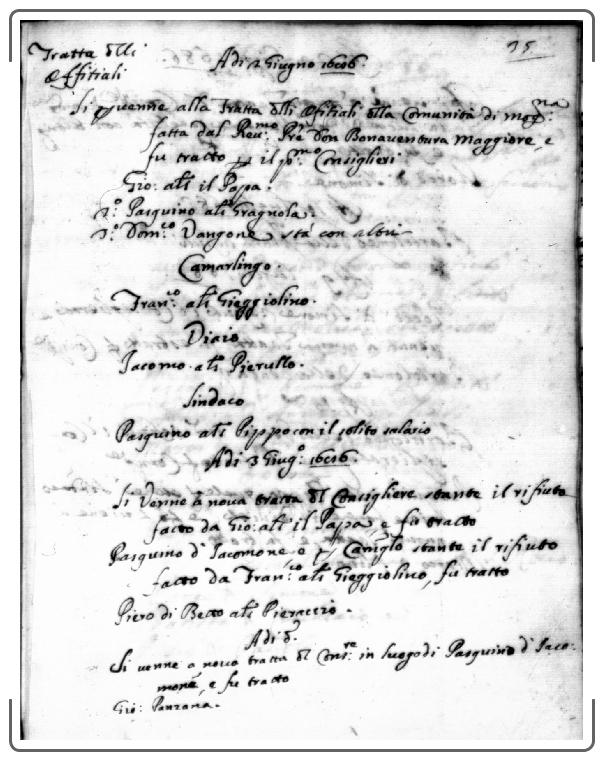 Tratta dlli
Offitiali
35
Adi 2 Giugno 1606.
Si venne alla Tratta dlli Offitiali dlla Comunità di
fatta dal Reu.mo Pre Don Bonauentura Maggiore, e
fù tracto il p.mo Consiglieri
Gio: als il Papa.
2.º Pasquino als Gragnola.
3.º Dom.co Vangone stà con altri
Camarlingo.
Fran.co als Gieggiolino.
Iacomo als Pierullo.
Sindaco
Pasquino als Pippo con il solito salario
Adi 3 Giug.º 1606.
Si Venne à nova tracta dl Consigliere stante il rifiuto
facto da Gio: als il Papa, e fù tracto
Pasquino d' Iacomone, e stante il rifiuto
facto da Fran.co als Gieggiolino, fù tratto
Piero di Becco als Pieraccio.
Adi d.º
Si uenne a noua tratta dl Cons.re in luogo di Pasquino d' Iaco:
mone, e fù tracto
Gio: Panzana.